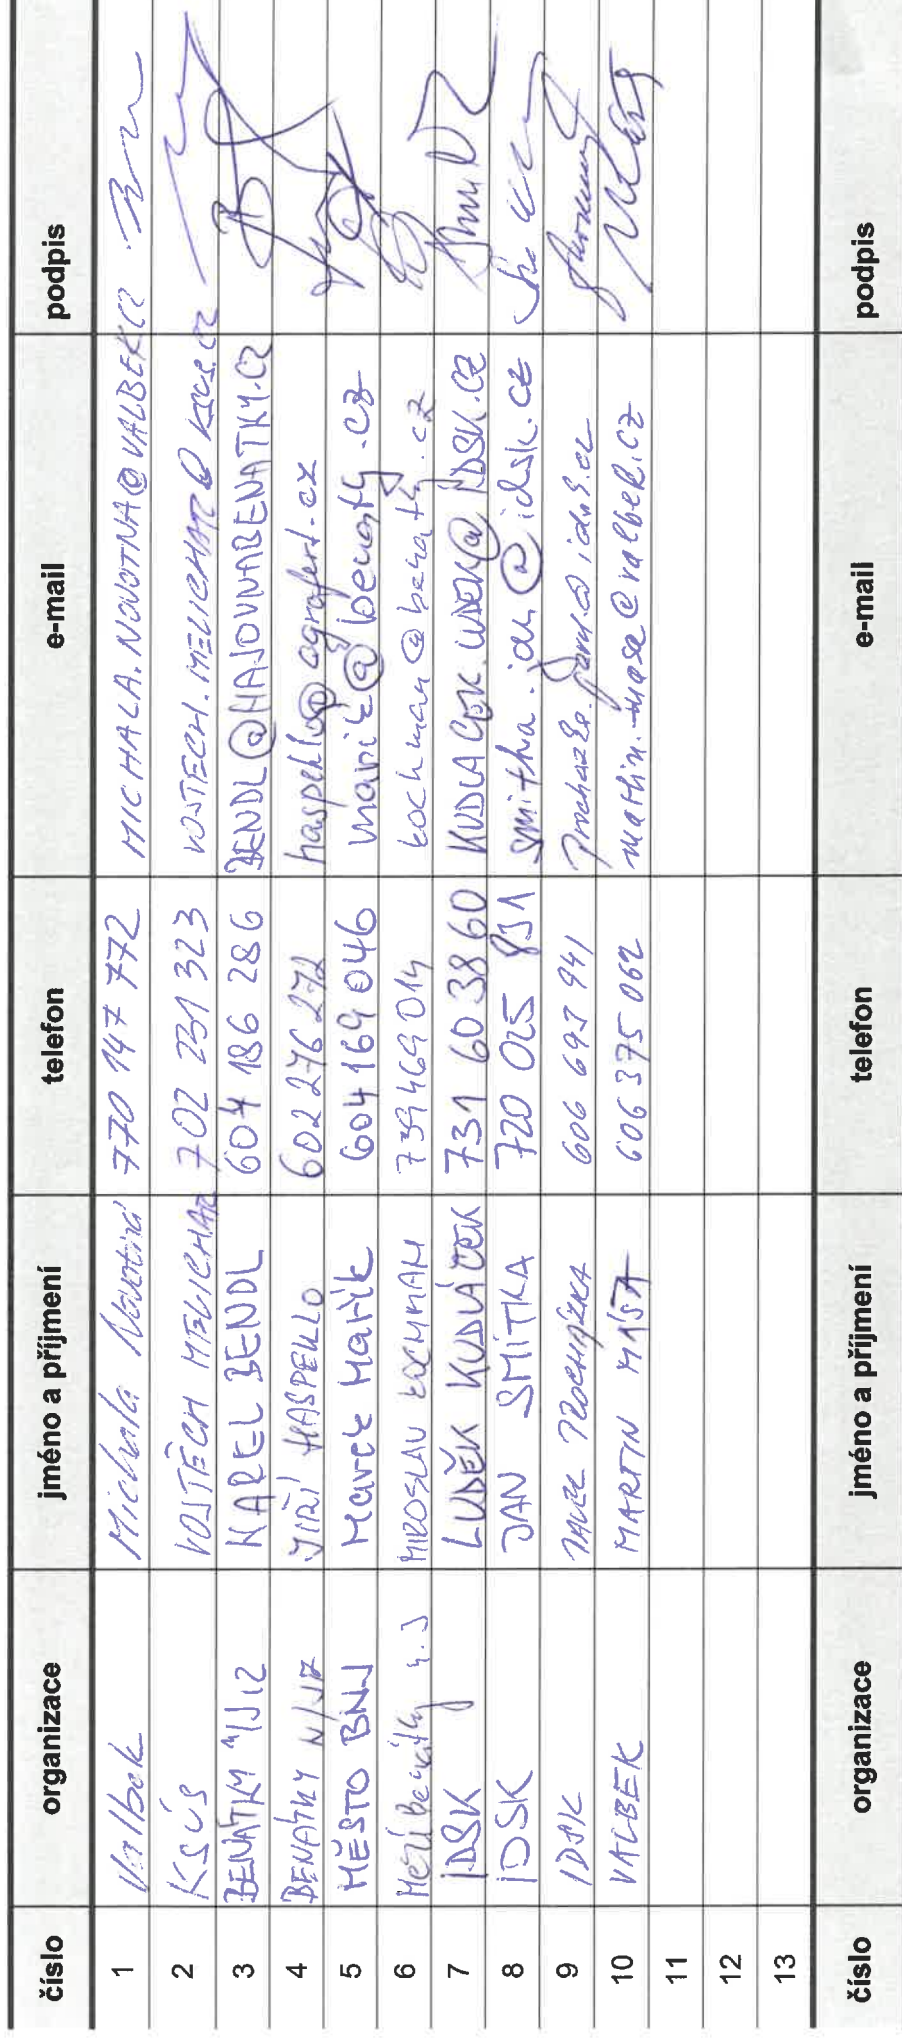 číslo organizace jméno a příjmení telefon e-mail podpis
1 Valbek Michala Novotná 770 147 772 MICHALA.NOVOTNA@VALBEK.CZ
2 KSÚS VOJTĚCH MELICHAR 702 231 323 VOJTECH.MELICHAR@KSUS.CZ
3 BENÁTKY N/JIZ KAREL BENDL 604 186 286 BENDL@HAJOVNABENATKY.CZ
4 BENÁTKY N/JIZ JIŘÍ HASPEKLO 602 276 272 haspeklo@agrofert.cz
5 MĚSTO BNJ Marek Mařík 604 169 046 marik@benatky.cz
6 Benátky n.J MIROSLAV KOCHMAN 739469014 kochman@benatky.cz
7 IDSK LUDĚK KUDLÁČEK 731 60 38 60 KUDLACEK.LUDEK@IDSK.CZ
8 IDSK JAN SMÍTKA 720 025 831 smitka.jan@idsk.cz
9 IDSK PAVEL PROCHÁZKA 606 693 941
10 VALBEK MARTIN MÁŠA 606 375 062 martin.masa@valbek.cz
11
12
13
číslo organizace jméno a příjmení telefon e-mail podpis